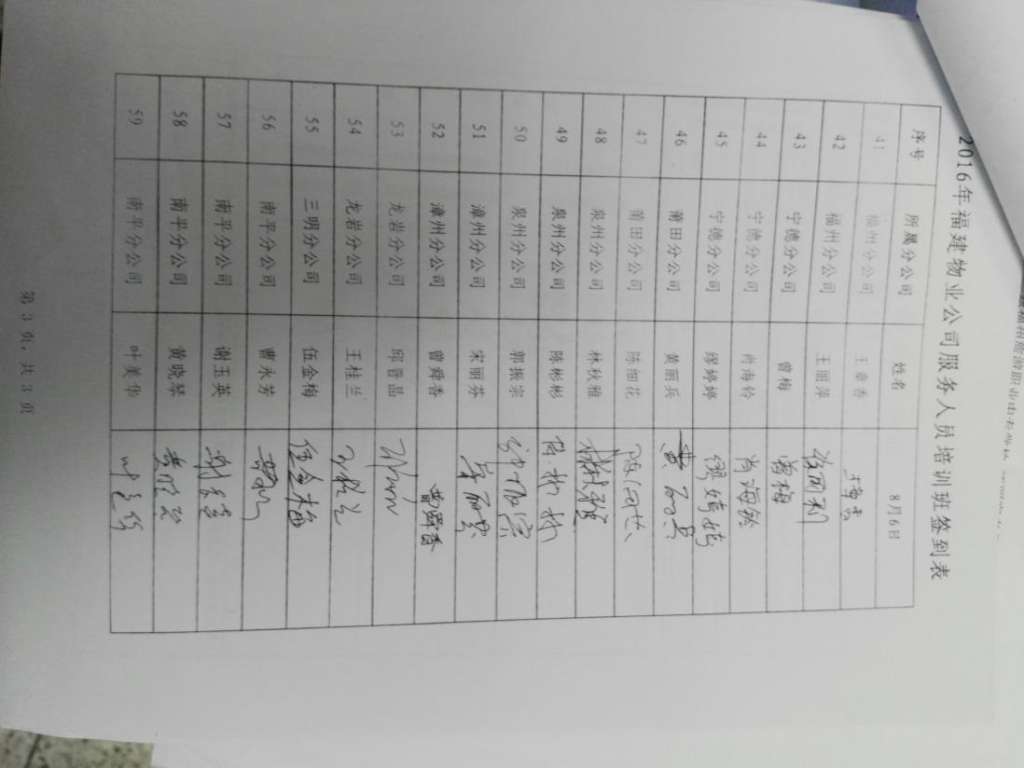 2016年福建物业公司服务人员培训班签到表
序号 所属分公司 姓名 8月6日
41 福州分公司 王章香
42 福州分公司 王丽萍
43 宁德分公司 曾梅 曾梅
44 宁德分公司 肖海铃 肖海铃
45 宁德分公司 缪婷婷 缪婷婷
46 莆田分公司 黄丽兵 黄丽兵
47 莆田分公司 陈细花
48 泉州分公司 林秋雅
49 泉州分公司 陈彬彬 陈彬彬
50 泉州分公司 郭振宗 郭振宗
51 漳州分公司 宋丽芬
52 漳州分公司 曾舜香 曾舜香
53 龙岩分公司 邱晋晶
54 龙岩分公司 王桂兰 王桂兰
55 三明分公司 伍金梅 伍金梅
56 南平分公司 曹永芳
57 南平分公司 谢玉英
58 南平分公司 黄晓琴
59 南平分公司 叶美华
第 3 页，共 3 页